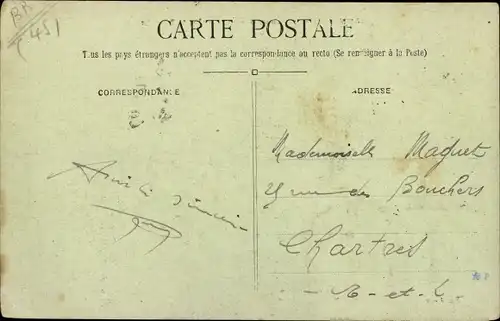 BR
451
CARTE POSTALE
Tous les pays étrangers n'acceptent pas la correspondance au recto (Se renseigner à la Poste)
CORRESPONDANCE
ADRESSE
Amitié sincère
Mademoiselle Maquet
rue des Bouchers
Chartres
E-et-L